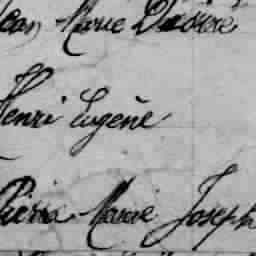 Jean Marie Désiré
Henri Eugène
Pierre Marie Joseph